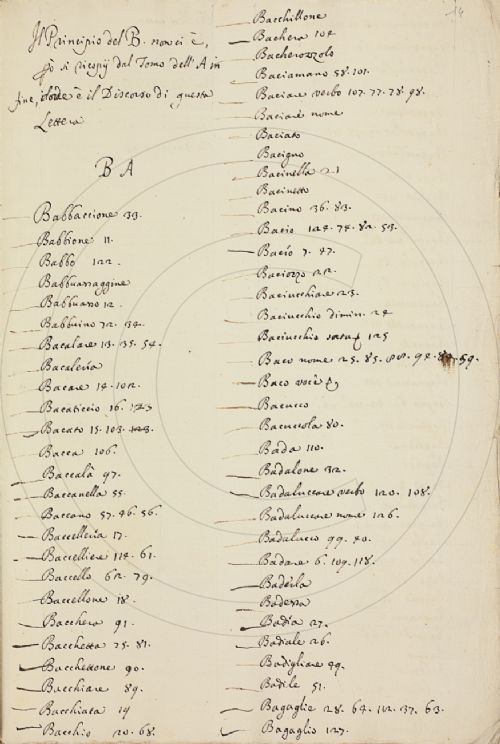 Il Principio del B. non ci è,
si ricopij dal Tomo dell'A in
fine, dove è il Discorso di questa
Lettera
B A
Babbaccione 33.
Babbione 11.
Babbo 122.
Babbuassaggine
Babbuasso 12.
Babbuino 72. 34.
Bacalare 13. 35. 54.
Bacaleria
Bacare 14. 102.
Bacaticcio 16. 123
Bacato 15. 103. 123.
Bacca 106.
Baccalà 97.
Baccanella 55.
Baccano 57. 46. 56.
Baccelleria 17.
Baccelliere 114. 61.
Baccello 62. 79.
Baccellone 18.
Bacchera 91.
Bacchetta 75. 81.
Bacchettone 90.
Bacchiare 89.
Bacchiata 19
Bacchio 20. 68.
14
Bacchillone
Bachera 104
Bacherozzolo
Baciamano 58. 101.
Baciare verbo 107. 77. 78. 98.
Baciare nome
Baciato
Bacigno
Bacinella 21
Bacinetto
Bacino 36. 83.
Bacio 124. 74. 82. 53.
Bacìo 7. 47.
Baciozzo 22.
Baciucchiare 23.
Baciucchio dimin. 24
Baciucchio 125
Baco nome 25. 85. 88. 94. 59.
Baco voce
Bacucco
Bacuccola 80.
Bada 110.
Badalone 32.
Badaluccare verbo 120. 108.
Badaluccare nome 126.
Badalucco 99. 40.
Badare 6. 109. 118.
Baderla
Badessa
Badia 27.
Badiale 26.
Badigliare 49.
Badile 51.
Bagaglie 28. 64. 112. 37. 63.
Bagaglio 127.